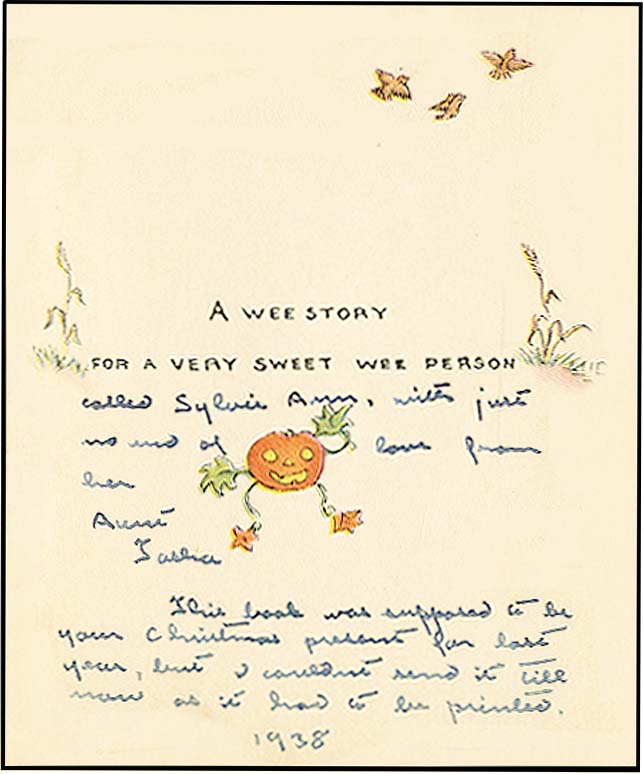 A WEE STORY
FOR A VERY SWEET WEE PERSON
called Sylvie Ann, with just
no end of love from
her
Aunt
This book was supposed to be
your Christmas present for last
year, but I couldn't send it till
now as it had to be printed.
1938